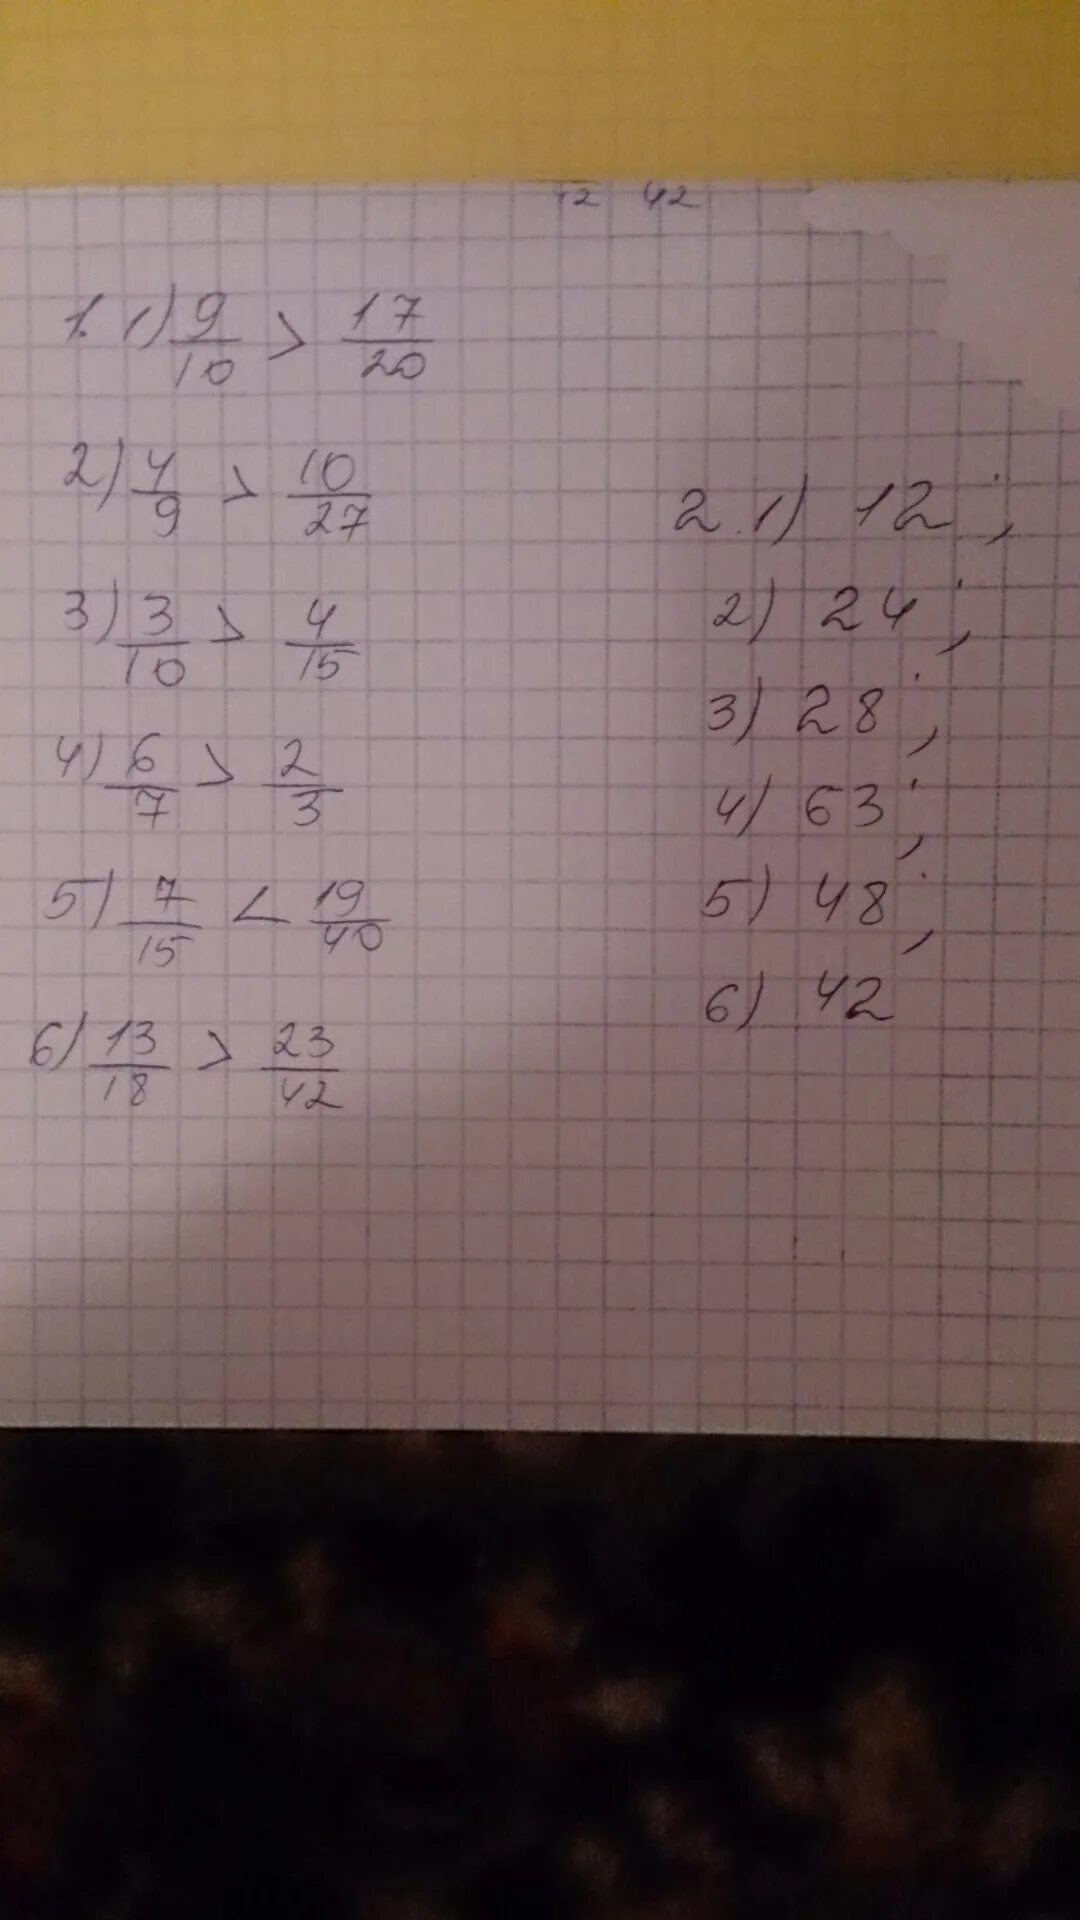 42
1. 1) 9/10 > 17/20
2) 4/9 > 10/27
3) 3/10 > 4/15
4) 6/7 > 2/3
5) 7/15 < 19/40
6) 13/18 > 23/42
2. 1) 12;
2) 24;
3) 28;
4) 63;
5) 48;
6) 42